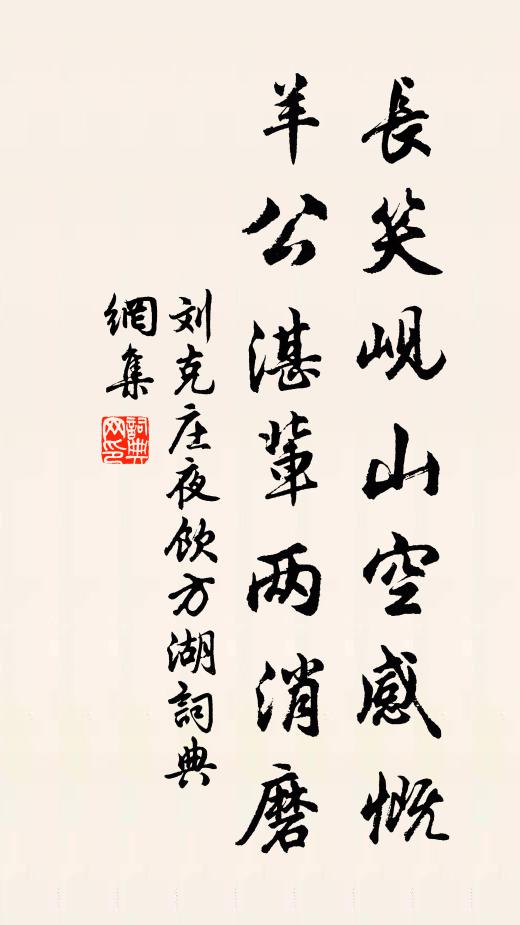 長笑峴山空感慨
羊公湛輩两消磨
刘克庄夜飲方湖詞典
網集
詞典網印